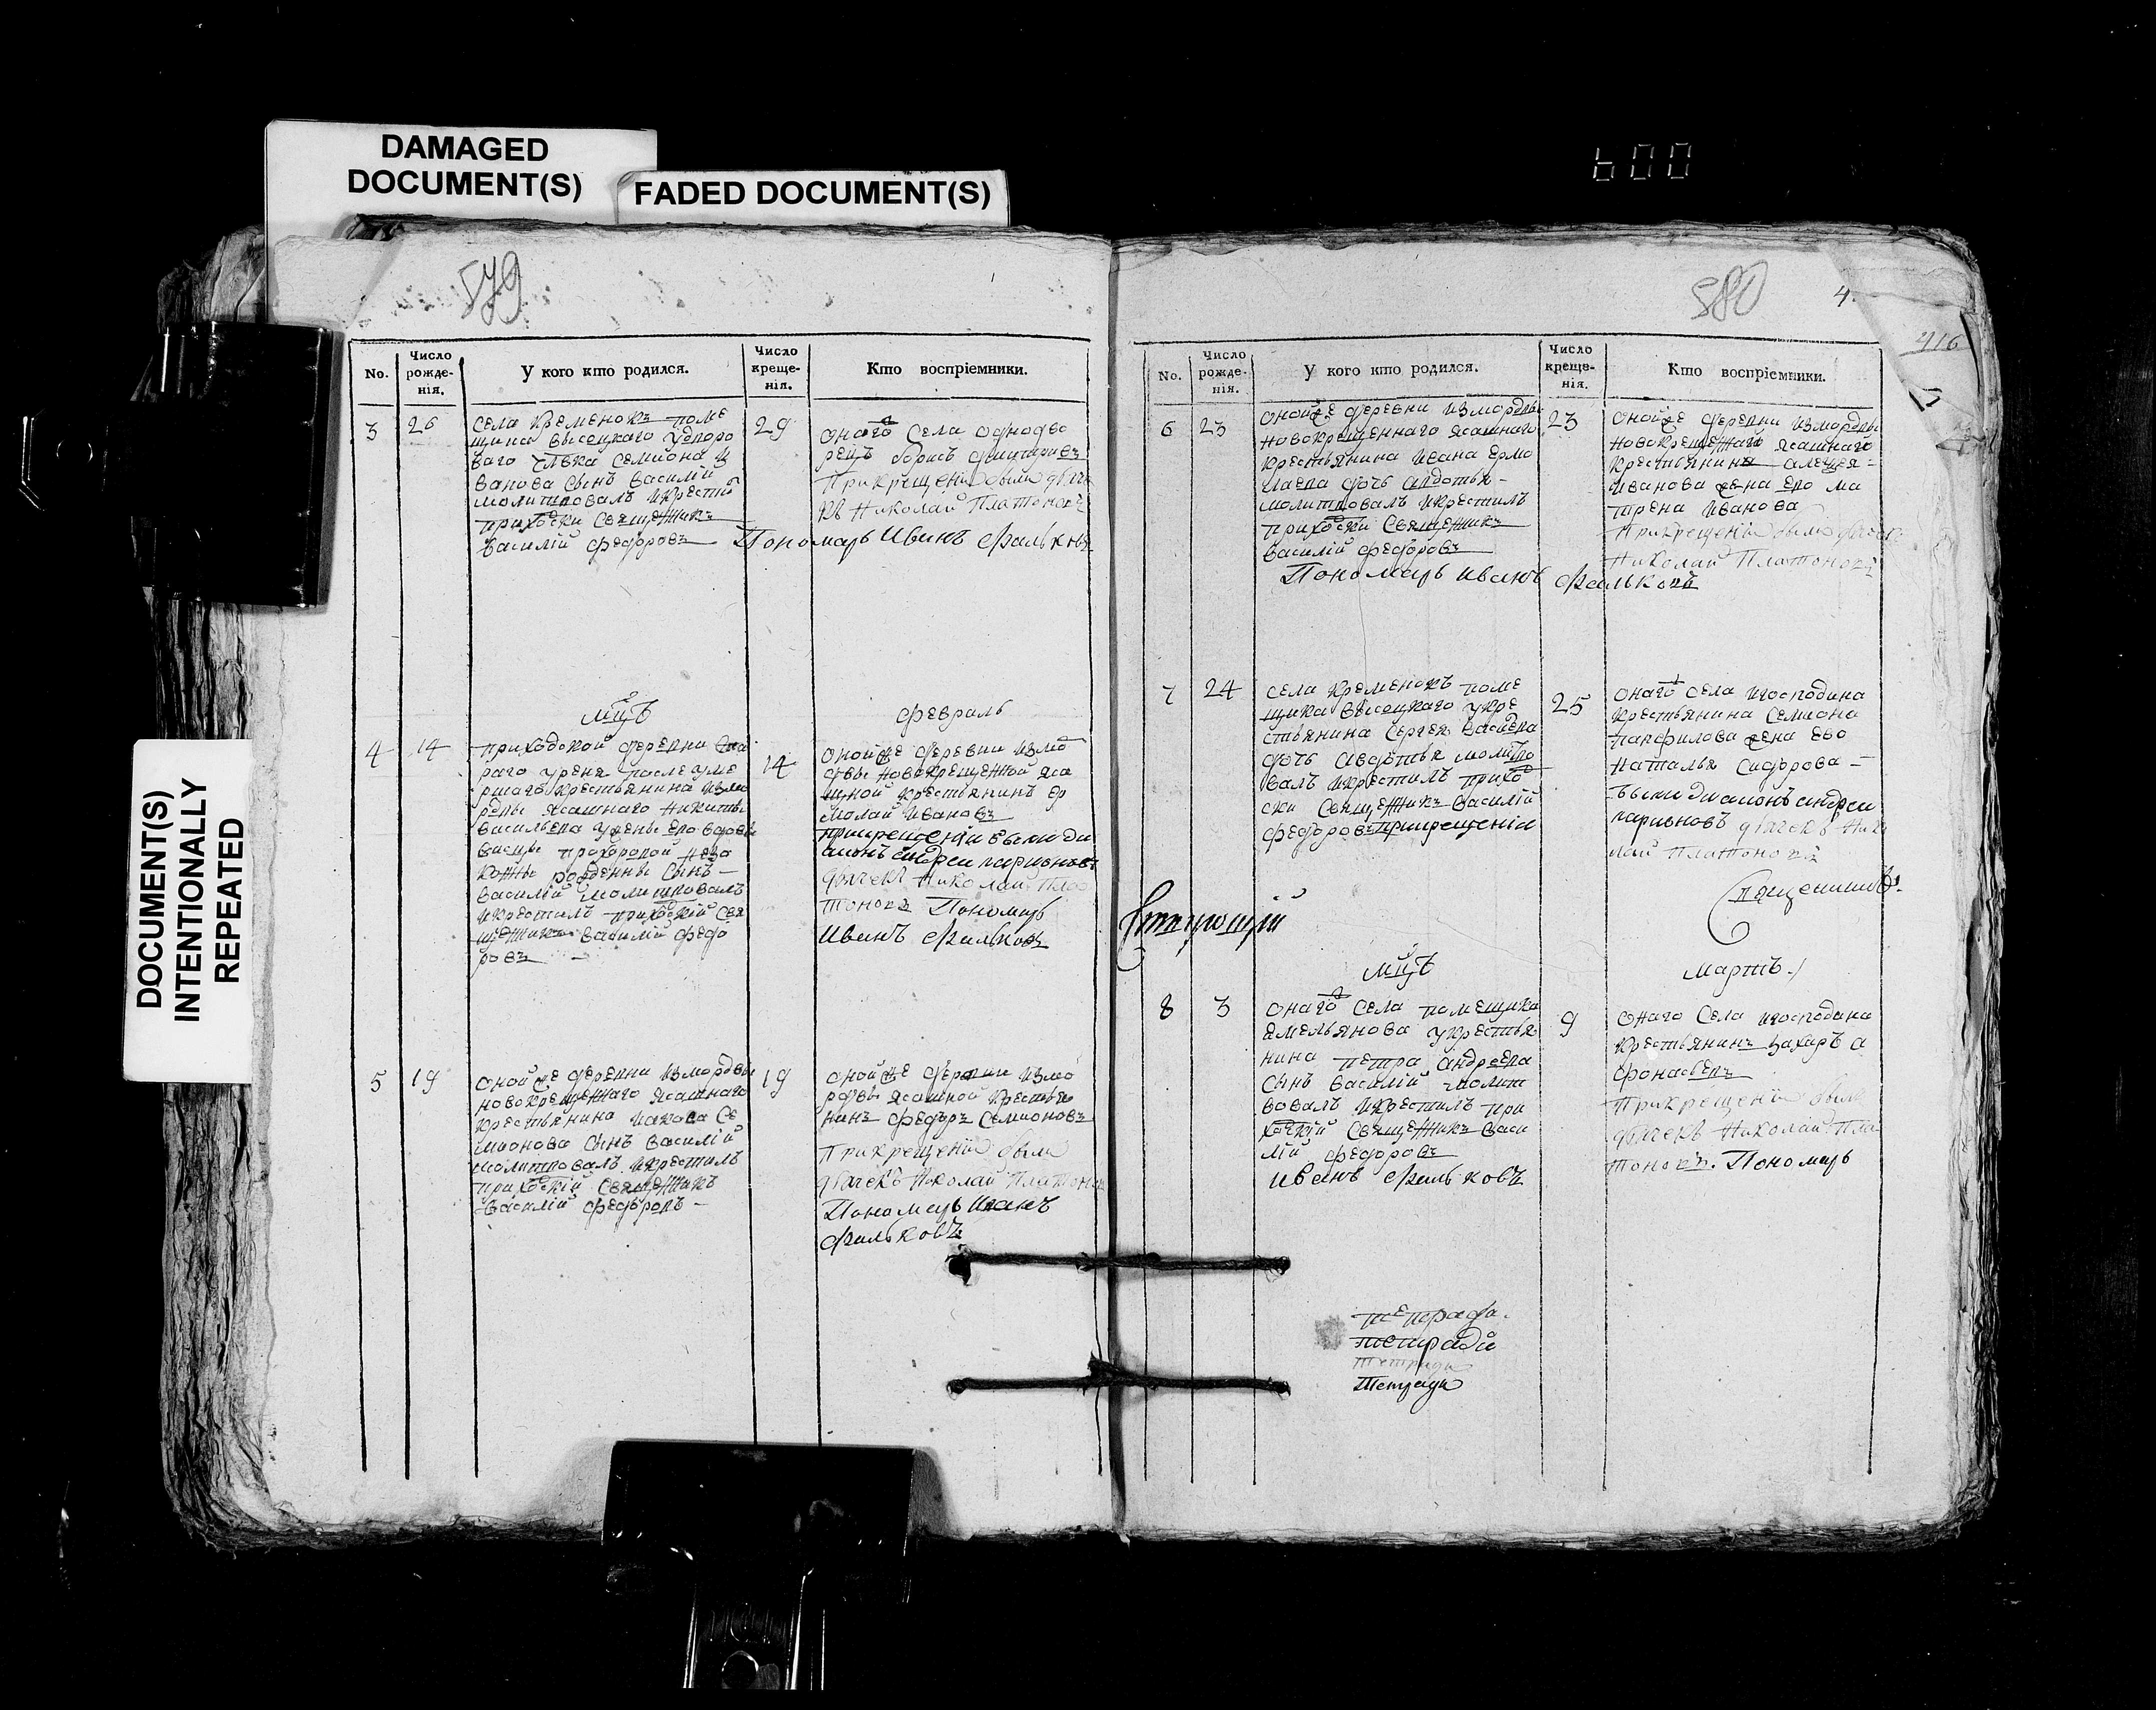 DAMAGED
DOCUMENT(S)
FADED DOCUMENT(S)
600
DOCUMENT(S)
INTENTIONALLY
REPEATED
579
No.
Число рожде-нія.
У кого кто родился.
Число креще-нія.
Кто воспріемники.
3
26
села Кременокъ поме
щика высоцкаго удворо
ваго члвка Семиона и
ванова сынъ василій
молитвовалъ икрестил
приходски священникъ
василій федоровъ
29
онаго села однодво
рецъ борисъ дмитриевъ
Прикрещеніи были дьяче
къ Николай Платоновъ
Пономарь Иванъ Фальковъ
мцъ
февраль
4
14
приходской деревни ста
раго уреня после уме
ршаго крестьянина измо
рдвы ясашнаго никиты
васильева ужены ево вдовы
прохоровой неза
конны рожденны сынъ
василій молитвовалъ
икрестилъ приходскій свя
щенникъ василій федо
ровъ
14
оной же деревни измо
рдвы новокрещенной яса
шной крестьянинъ ер
молай ивановъ
прикрещеніи были ди
аконъ андреи
дьячекъ Николай Пла
тоновъ Пономарь
Иванъ Фальковъ
5
19
оной же деревни измордвы
новокрещеннаго ясашнаго
крестьянина иакова се
мионова сынъ василій
молитвовалъ икрестилъ
приходскій священникъ
василій федоровъ
19
оной же деревни измо
рдвы ясашной крестья
нинъ федоръ семионовъ
Прикрещеніи были
дьячекъ Николай Платонов
Пономарь Иванъ
Фальковъ
580
4
416
No.
Число рожде-нія.
У кого кто родился.
Число креще-нія.
Кто воспріемники.
6
23
оной же деревни измордвы
новокрещеннаго ясашнаго
крестьянина ивана ермо
лаева дочь авдотья
молитвовалъ икрестилъ
приходски священникъ
василій федоровъ
23
оной же деревни измордвы
новокрещеннаго ясашнаго
крестьянина алексея
иванова жена ево ма
трена иванова
Прикрещеніи были дьячек
Николай Платоновъ
Пономарь Иванъ Фальковъ
7
24
села Кременокъ поме
щика высоцкаго укре
стьянина сергея васильева
дочь авдотья молитво
валъ икрестилъ прихо
ски священникъ василій
федоровъ прикрещеніи
25
онаго села игосподина
крестьянина семиона
панфилова жена ево
наталья сидорова
были диаконъ андреи
дьячекъ Нико
лай Платоновъ
Священникъ
мцъ
мартъ
8
3
онаго села помещика
емельянова укрестья
нина петра андреева
сынъ василій молит
вовалъ икрестилъ при
хоскій священникъ васи
лій федоровъ
Иванъ Фальковъ
9
онаго села игосподина
крестьянинъ захаръ а
фонасьевъ
Прикрещеніи были
дьячекъ Николай Пла
тоновъ. Пономарь
тетради
тетради
тетради